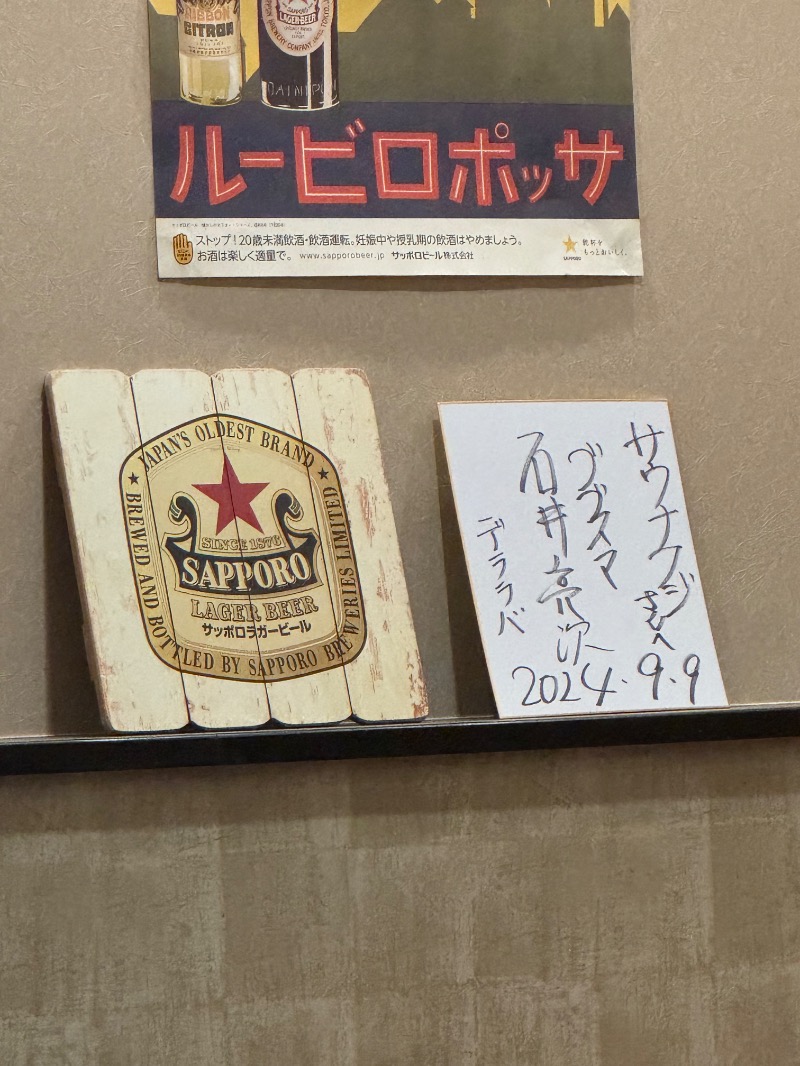 RIBBON
CITRON
SAPPORO
LAGER BEER
DAINIPPON BREWERY COMPANY
ルービロポッサ
ストップ!20歳未満飲酒・飲酒運転。妊娠中や授乳期の飲酒はやめましょう。
お酒は楽しく適量で。 www.sapporobeer.jp サッポロビール株式会社
乾杯を
もっとおいしく。
SAPPORO
JAPAN'S OLDEST BRAND
BREWED AND BOTTLED BY SAPPORO BREWERIES LIMITED
SINCE 1876
SAPPORO
LAGER BEER
サッポロラガービール
サウナクジさんへ
ププスマ
石井亮次
デララバ
2024.9.9